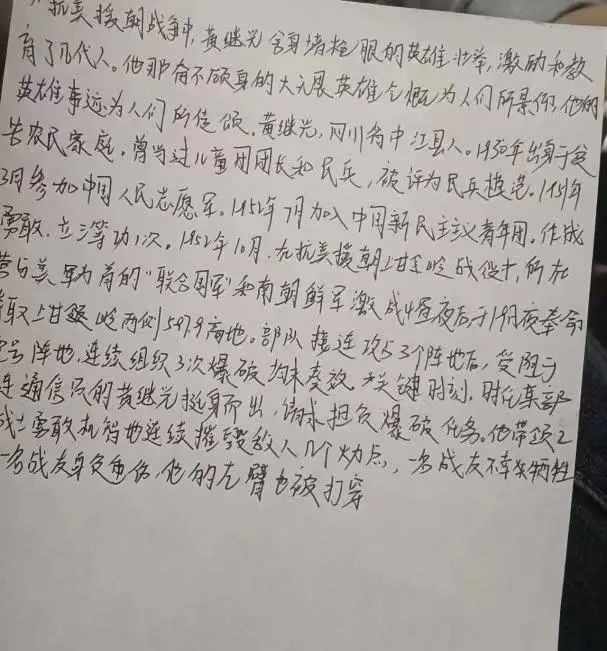 抗美援朝战争中,黄继光舍身堵枪眼的英雄壮举,激励和教
育了几代人。他那奋不顾身的大无畏英雄气概为人们所景仰,他的
英雄事迹为人们所传颂。黄继光,四川省中江县人。1930年出身于贫
苦农民家庭,曾当过儿童团团长和民兵,被评为民兵模范。1951年
3月参加中国人民志愿军。1952年7月加入中国新民主主义青年团。作战
勇敢,立三等功1次。1952年10月,在抗美援朝上甘岭战役中,所在
营与美军为首的“联合国军”和南朝鲜军激战4昼夜后于19日夜奉命
夺取上甘岭西侧597.9高地。部队接连攻占3个阵地后,受阻于
号阵地,连续组织3次爆破均未奏效。关键时刻,时任某部
连通信员的黄继光挺身而出,请求担负爆破任务。他带领2
战士勇敢机智地连续摧毁敌人几个火力点,一名战友不幸牺牲
一名战友身负重伤,他的左臂也被打穿